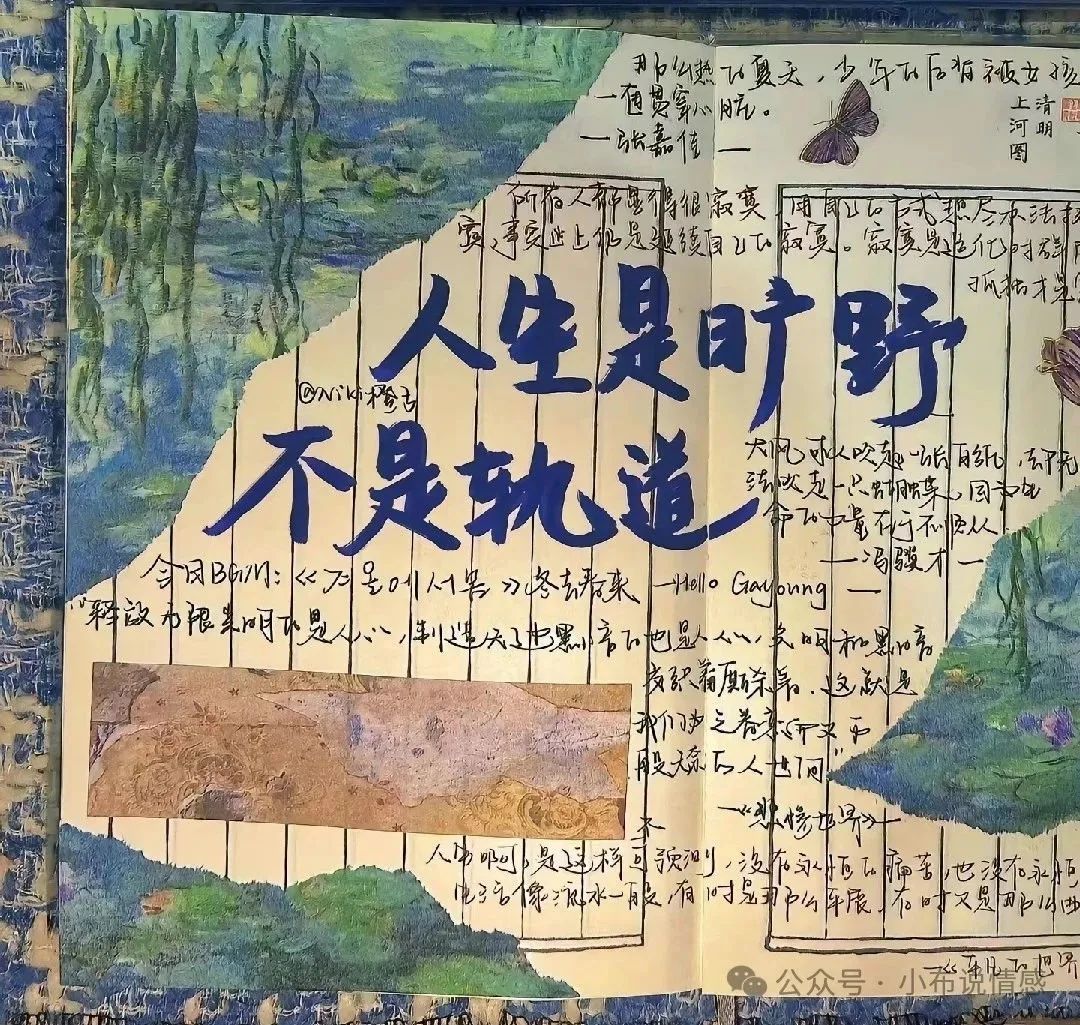 那么热的夏天，少年的后背被女孩
一阵贯穿心脏。
—张嘉佳—
清明
上河图
所有人都显得很寂寞，用自己的方式想尽办法
寞，事实上仍是延续自己的寂寞。寂寞是造化对群
孤独才是
人生是旷野
@Niki橙子
不是轨道
大风可以吹起一张白纸，却无
法吹走一只蝴蝶，因为生
命的力量在于不顺从
—冯骥才—
今日BGM：《겨울에서 봄》冬去春来 —Hello Gayoung—
“释放无限光明的是人心，制造无边黑暗的也是人心，光明和黑暗
交织着厮杀着，这就是
我们为之眷恋而又万
般无奈的人世间”
—《悲惨世界》—
人生啊，是这样不可预测，没有永恒的痛苦，也没有永恒
生活像流水一般，有时是那么平展，有时又是那么曲
《平凡的世界
公众号 · 小布说情感